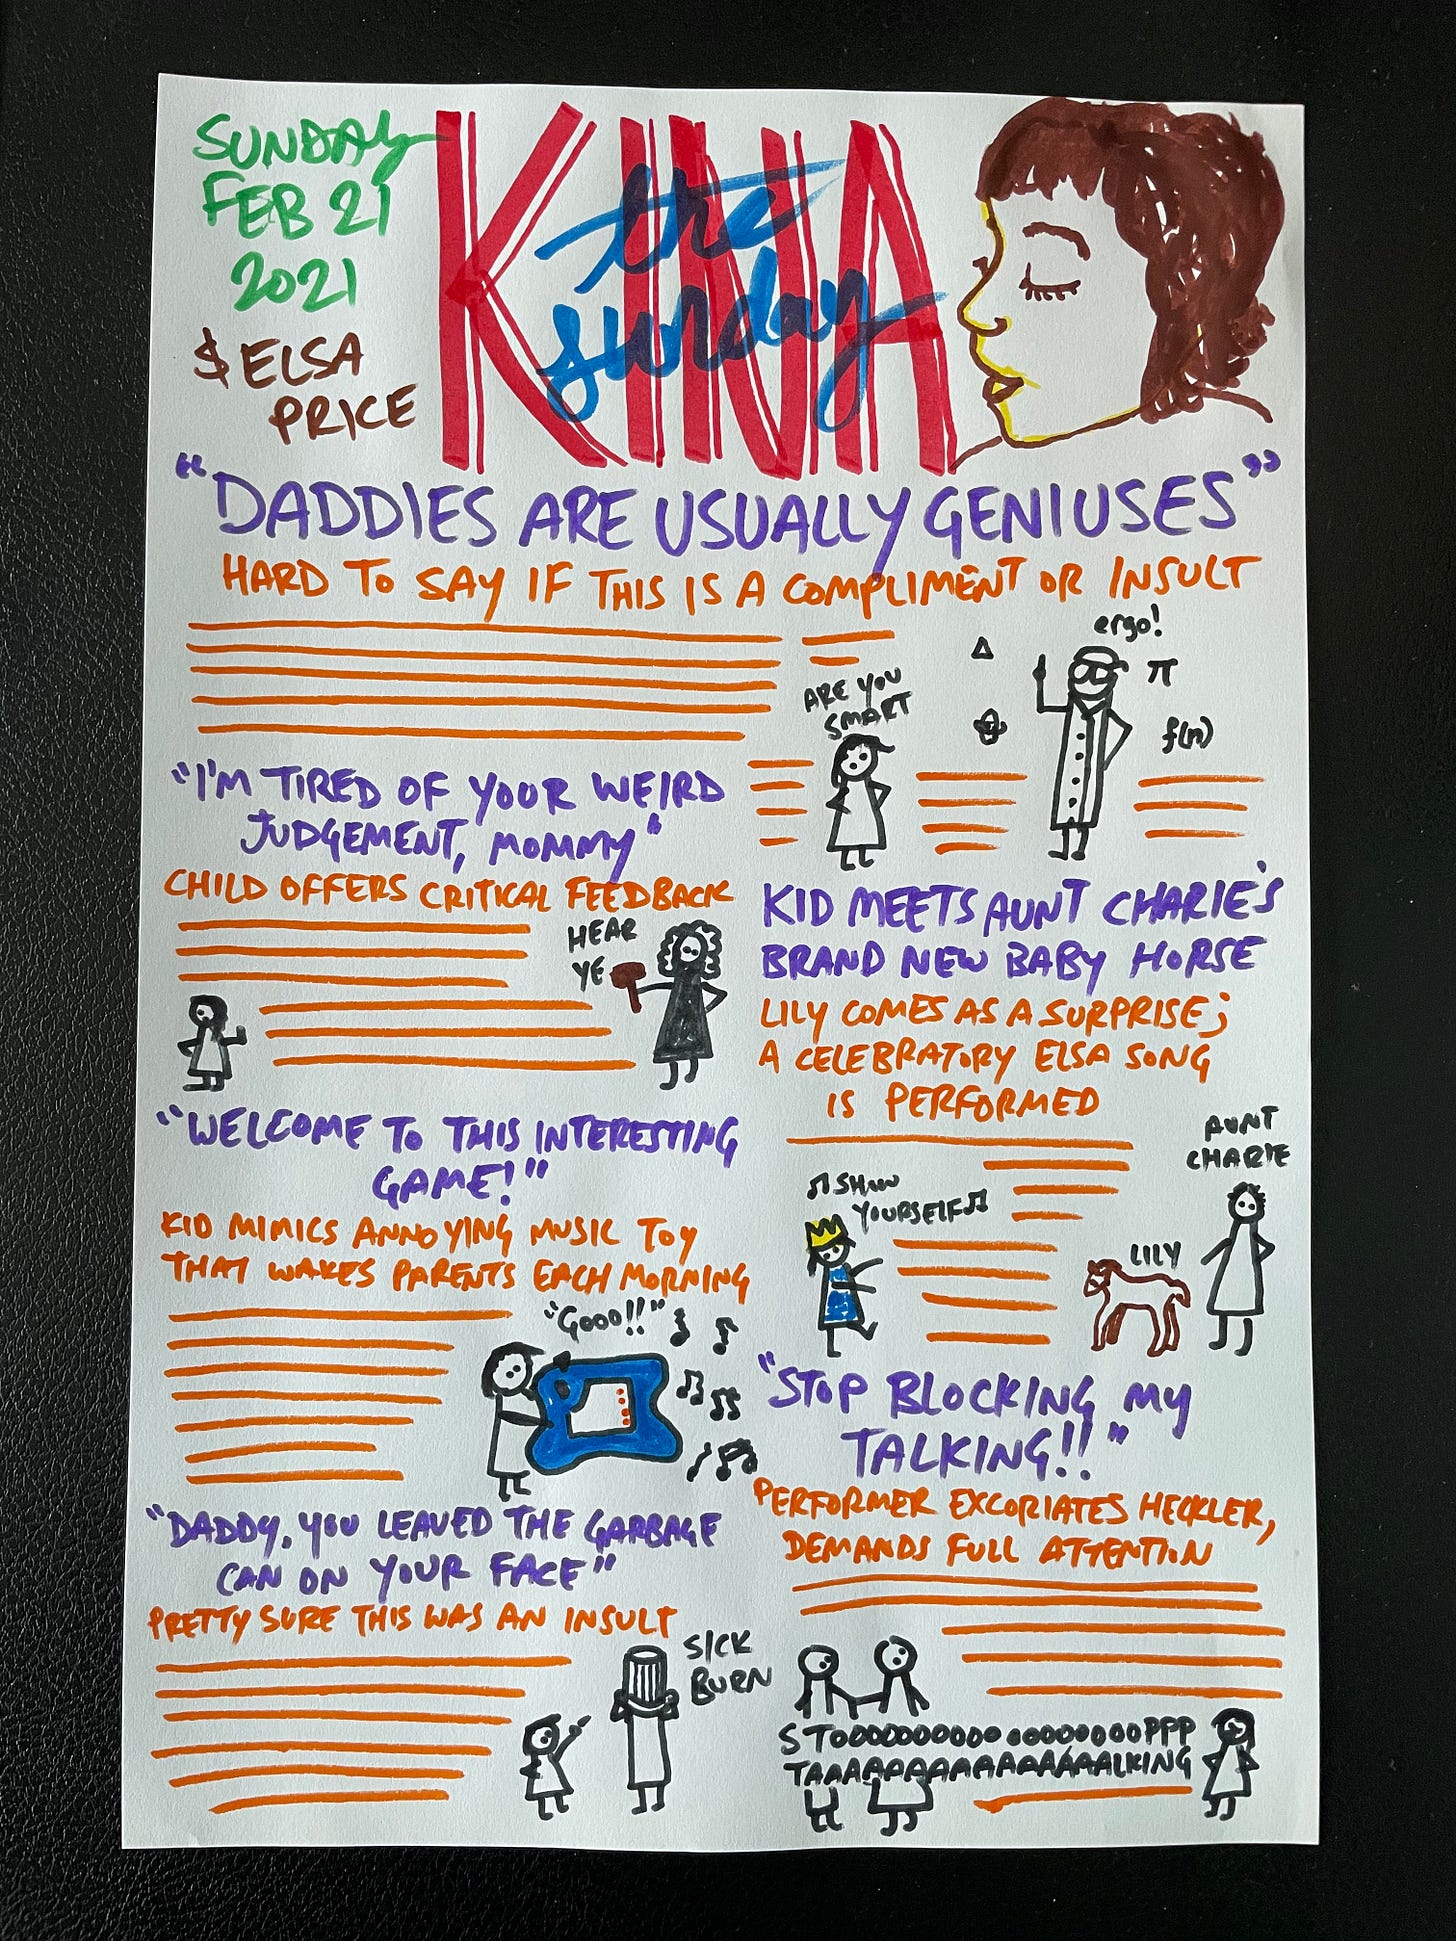 SUNDAY
FEB 21
2021
$ ELSA
PRICE
KINA
the
sunday
"DADDIES ARE USUALLY GENIUSES"
HARD TO SAY IF THIS IS A COMPLIMENT OR INSULT
ARE YOU
SMART
ergo!
Δ
π
f(n)
"I'M TIRED OF YOUR WEIRD
JUDGEMENT, MOMMY"
CHILD OFFERS CRITICAL FEEDBACK
HEAR
YE
"WELCOME TO THIS INTERESTING
GAME!"
KID MIMICS ANNOYING MUSIC TOY
THAT WAKES PARENTS EACH MORNING
"Gooo!!"
"DADDY, YOU LEAVED THE GARBAGE
CAN ON YOUR FACE"
PRETTY SURE THIS WAS AN INSULT
SICK
BURN
KID MEETS AUNT CHARIE'S
BRAND NEW BABY HORSE
LILY COMES AS A SURPRISE;
A CELEBRATORY ELSA SONG
IS PERFORMED
AUNT
CHARIE
♫ SHOW
YOURSELF ♫
LILY
"STOP BLOCKING MY
TALKING!!"
PERFORMER EXCORIATES HECKLER,
DEMANDS FULL ATTENTION
STOOOOOOOOOOOOOOOOOOOPPP
TAAAAAAAAAAAAAAAAALKING